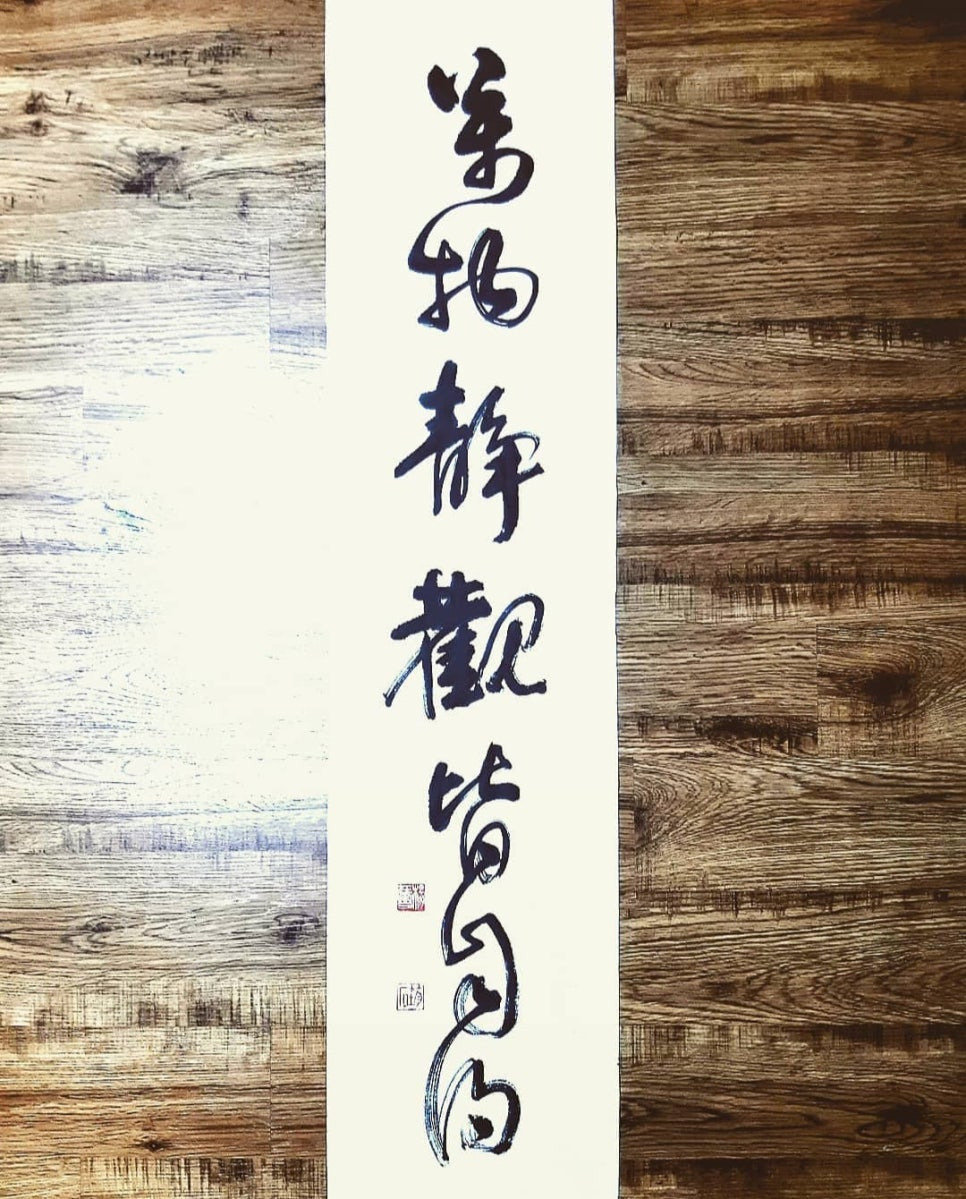 萬物靜觀皆自得